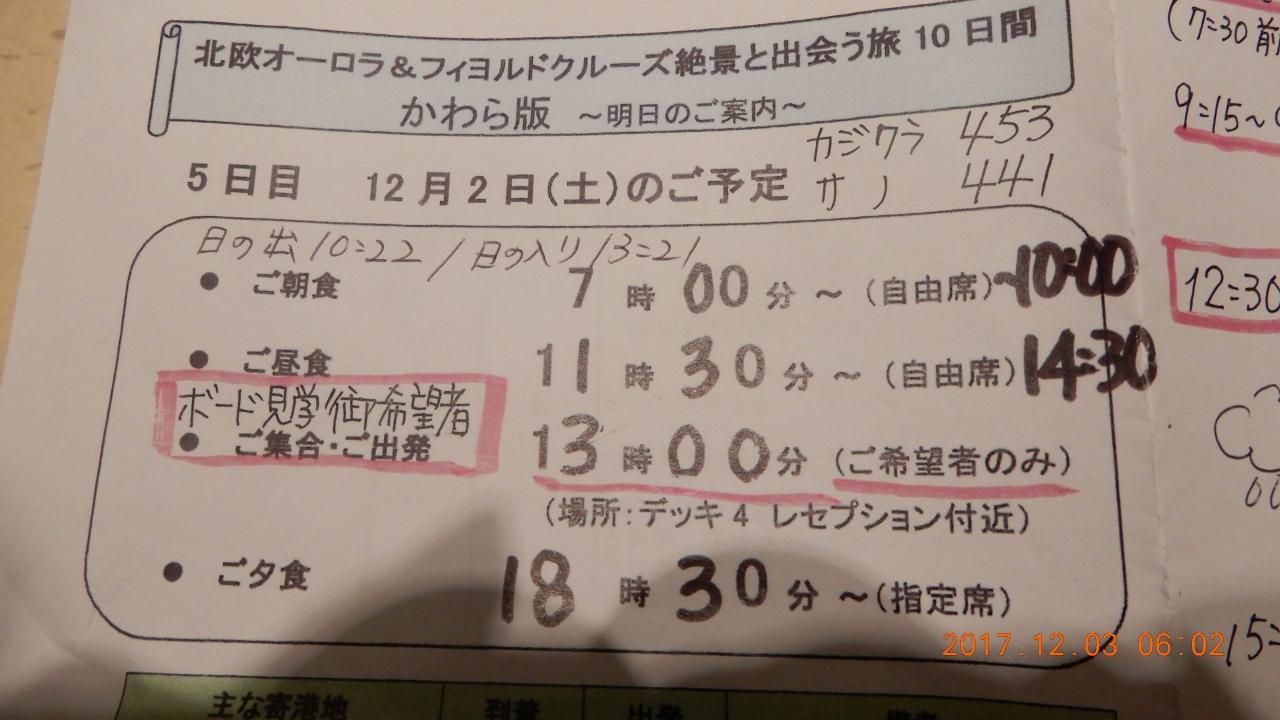 北欧オーロラ&フィヨルドクルーズ絶景と出会う旅10日間
かわら版 ～明日のご案内～
カジクラ 453
サノ 441
5日目 12月2日(土)のご予定
日の出10:22/日の入り13:21
● ご朝食 7時00分～(自由席)~10:00
● ご昼食 11時30分～(自由席)14:30
ボード見学御希望者
● ご集合・ご出発 13時00分(ご希望者のみ)
(場所:デッキ4 レセプション付近)
● ご夕食 18時30分～(指定席)
主な寄港地 到着 出発 備考
(7:30前
9:15~
12:30
15:
2017.12.03 06:02